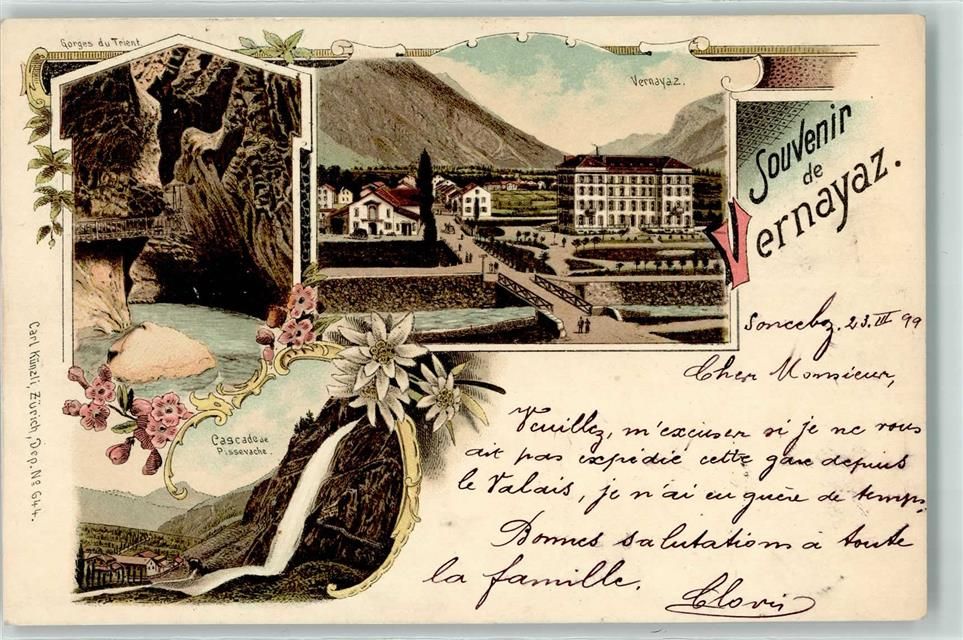 Gorges du Trient
Vernayaz.
Souvenir
de
Vernayaz.
Sonceboz. 23. III 99
Cher Monsieur,
Veuillez, m'excuser si je ne vous
ait pas expédié cette gare depuis
le Valais, je n'ai eu guère de temps.
Bonnes salutations à toute
la famille.
Clovis
Cascade de
Pissevache.
Carl Künzli, Zürich, Dep. No 644.